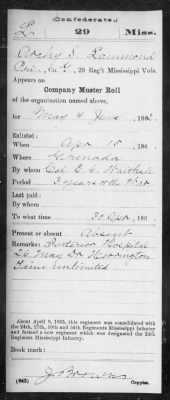 Confederate.
L 29 Miss.
Archy S. Lammond
Co. G, 29 Reg't Mississippi Vols.
Appears on
Company Muster Roll
of the organization named above,
for May & June, 1862.
Enlisted:
When Apr 15, 186 .
Where Grenada
By whom Col E. C. Walthall
Period 3 years or the War
Last paid:
By whom
To what time 30 Apr, 186 .
Present or absent Absent
Remarks: Interior Hospital
26 May Dr Herrington
Time unlimited
About April 9, 1865, this regiment was consolidated with
the 24th, 27th, 30th and 34th Regiments Mississippi Infantry
and formed a new regiment which was designated the 24th
Regiment Mississippi Infantry.
Book mark:
(642) J. Browne
Copyist.